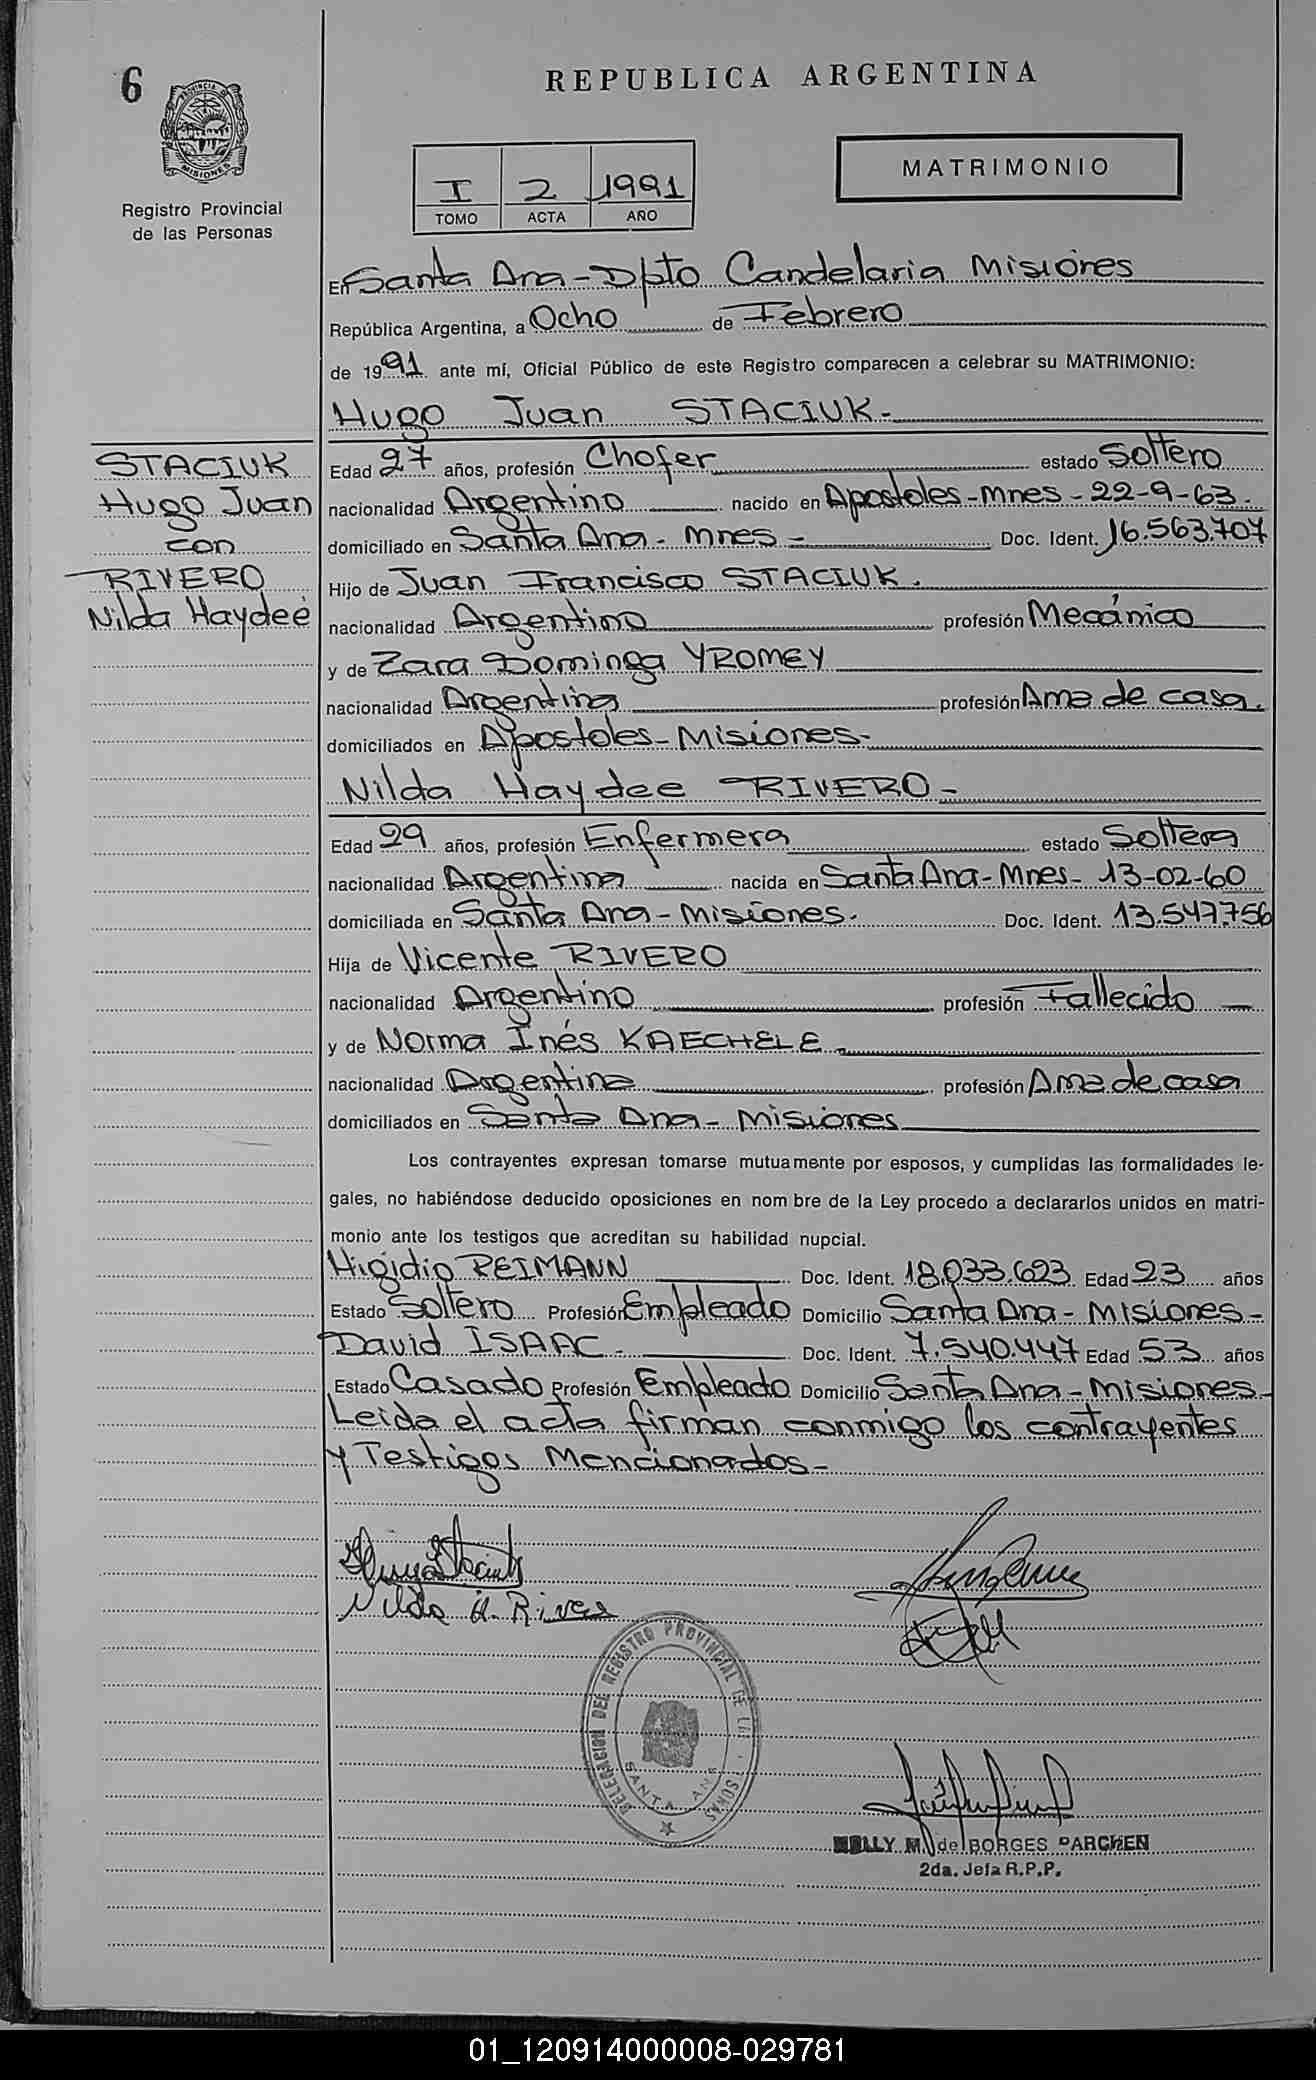 6
REPUBLICA ARGENTINA
PROVINCIA DE
MISIONES
Registro Provincial
de las Personas
I 2 1991
TOMO ACTA AÑO
MATRIMONIO
En Santa Ana - Dpto Candelaria Misiones
República Argentina, a Ocho de Febrero
de 1991 ante mí, Oficial Público de este Registro comparecen a celebrar su MATRIMONIO:
Hugo Juan STACIUK.-
STACIUK
Hugo Juan
con
RIVERO
Nilda Haydeé
Edad 27 años, profesión Chofer estado Soltero
nacionalidad Argentino nacido en Apostoles - Mnes - 22-9-63.
domiciliado en Santa Ana - Mnes - Doc. Ident. 16.563.707
Hijo de Juan Francisco STACIUK.
nacionalidad Argentino profesión Mecánico
y de Zara Dominga YROMEY
nacionalidad Argentina profesión Ama de casa.
domiciliados en Apostoles - Misiones.-
Nilda Haydee RIVERO -
Edad 29 años, profesión Enfermera estado Soltera
nacionalidad Argentina nacida en Santa Ana - Mnes - 13-02-60
domiciliada en Santa Ana - Misiones. Doc. Ident. 13.547.756
Hija de Vicente RIVERO
nacionalidad Argentino profesión Fallecido
y de Norma Inés KAECHELE
nacionalidad Argentina profesión Ama de casa
domiciliados en Santa Ana - Misiones
Los contrayentes expresan tomarse mutuamente por esposos, y cumplidas las formalidades le-
gales, no habiéndose deducido oposiciones en nom bre de la Ley procedo a declararlos unidos en matri-
monio ante los testigos que acreditan su habilidad nupcial.
Higidio REIMANN Doc. Ident. 18.033.623 Edad 23 años
Estado Soltero Profesión Empleado Domicilio Santa Ana - Misiones -
David ISAAC. Doc. Ident. 7.540.447 Edad 53 años
Estado Casado Profesión Empleado Domicilio Santa Ana - Misiones
Leida el acta firman conmigo los contrayentes
y Testigos Mencionados -
Nilda H. Rivero
DELEGACION DEL REGISTRO PROVINCIAL DE LAS
SANTA ANA
M. de BORGES PARCHEN
2da. Jefa R.P.P.
01_120914000008-029781